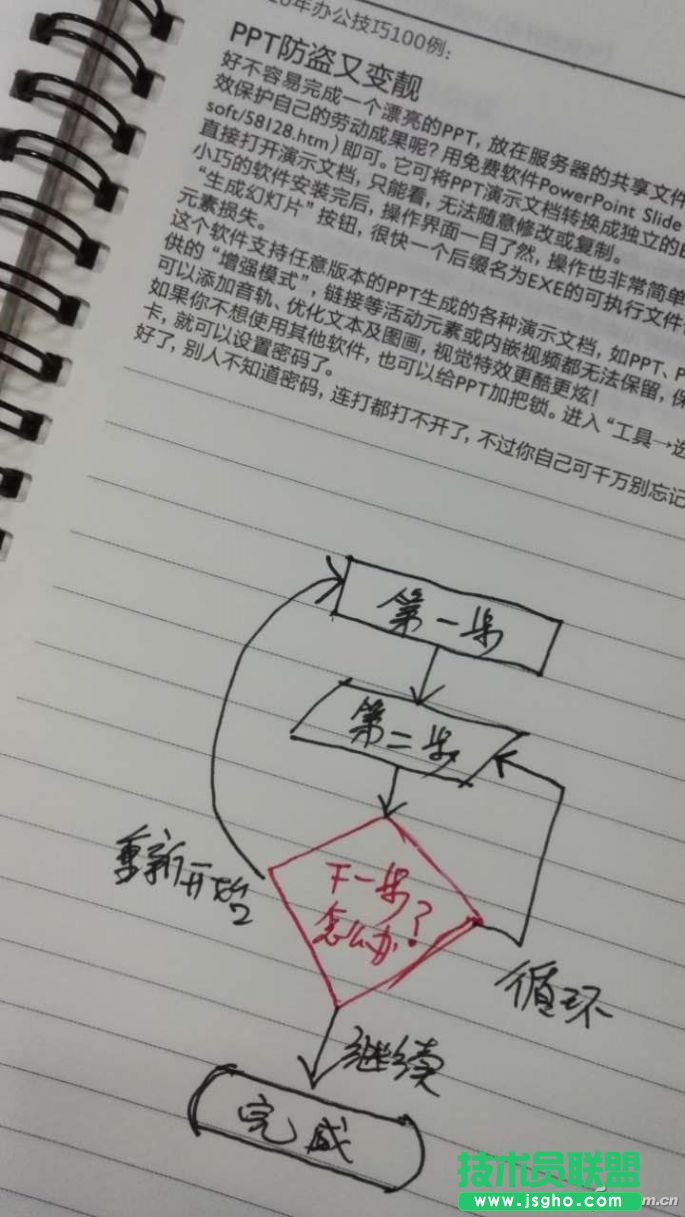 年办公技巧100例:
PPT防盗又变靓
好不容易完成一个漂亮的PPT, 放在服务器的共享文件
效保护自己的劳动成果呢? 用免费软件PowerPoint Slide
soft/58128.htm) 即可。它可将PPT演示文档转换成独立的E
直接打开演示文档, 只能看, 无法随意修改或复制。
小巧的软件安装完后, 操作界面一目了然, 操作也非常简单
“生成幻灯片” 按钮, 很快一个后缀名为EXE的可执行文件
元素损失。
这个软件支持任意版本的PPT生成的各种演示文档, 如PPT、P
供的 “增强模式” , 链接等活动元素或内嵌视频都无法保留, 保
可以添加音轨、优化文本及图画, 视觉特效更酷更炫!
如果你不想使用其他软件, 也可以给PPT加把锁。进入 “工具→选
卡, 就可以设置密码了。
好了, 别人不知道密码, 连打都打不开了, 不过你自己可千万别忘记
第一步
第二步
下一步
怎么办?
重新开始
循环
继续
完成
技术员联盟
www.jsgho.com
m.cn